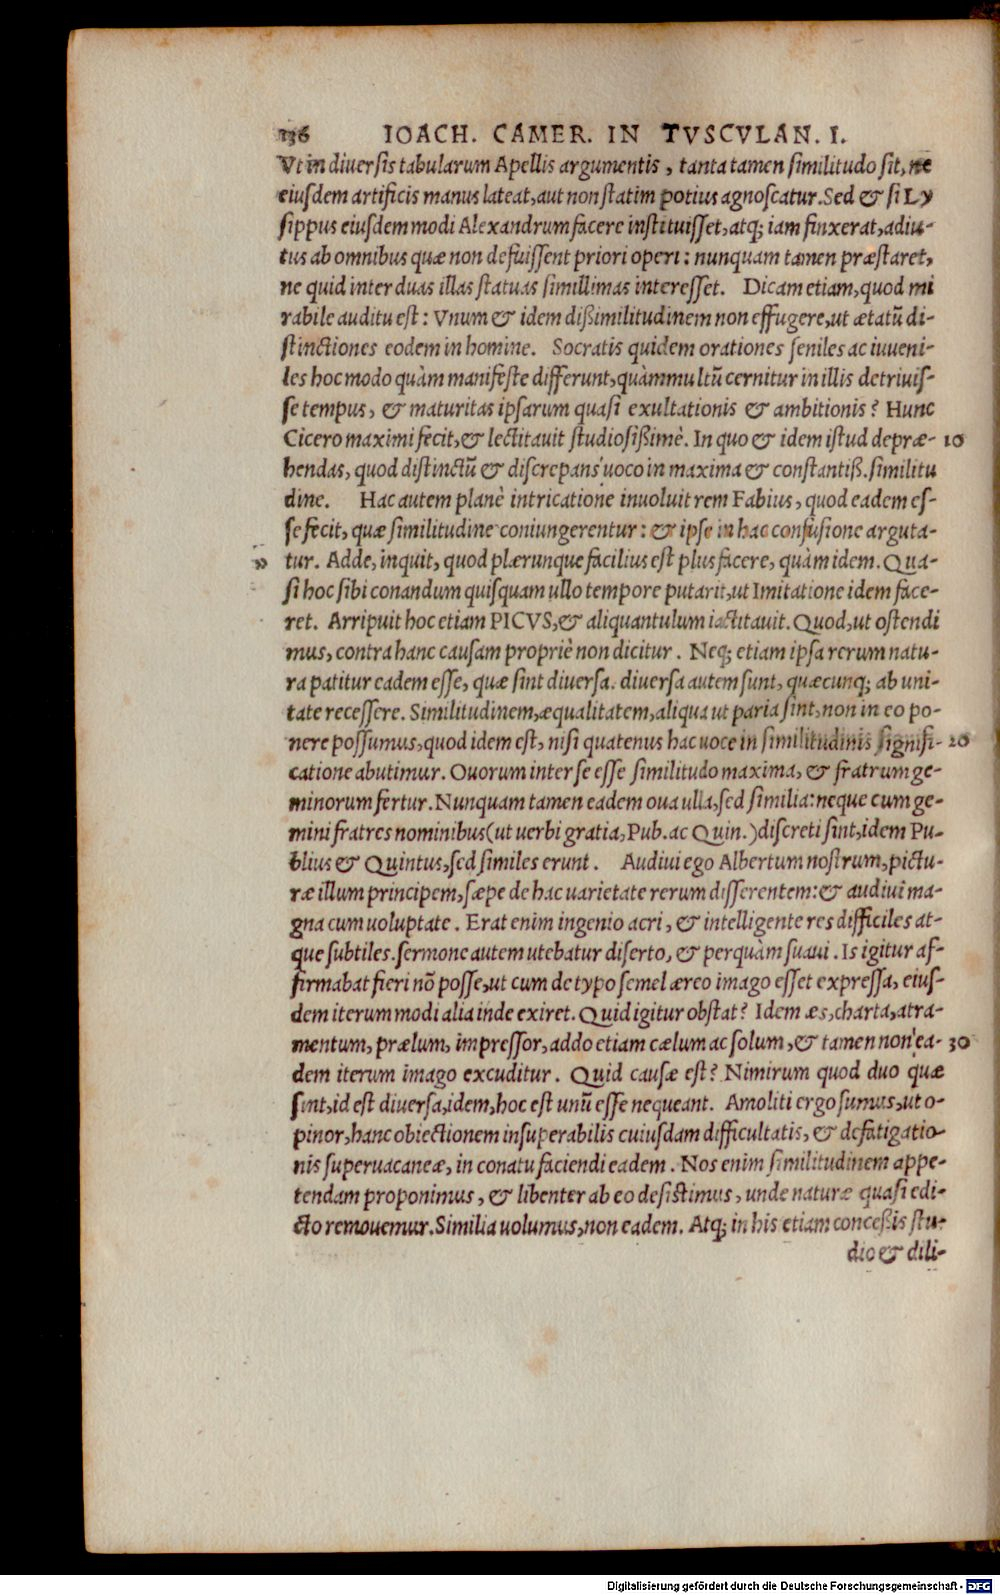 136 IOACH. CAMER. IN TVSCVLAN. I.
Vt in diuersis tabularum Apellis argumentis, tanta tamen similitudo sit, ne
eiusdem artificis manus lateat, aut non statim potius agnoscatur. Sed & si Ly
sippus eiusdem modi Alexandrum facere instituisset, atq; iam finxerat, adiu-
tus ab omnibus quæ non defuissent priori operi: nunquam tamen præstaret,
ne quid inter duas illas statuas simillimas interesset. Dicam etiam, quod mi
rabile auditu est: Vnum & idem dißimilitudinem non effugere, ut ætatũ di-
stinctiones eodem in homine. Socratis quidem orationes seniles ac iuueni-
les hoc modo quàm manifeste differunt, quàm multũ cernitur in illis detriuis-
se tempus, & maturitas ipsarum quasi exultationis & ambitionis? Hunc
Cicero maximi fecit, & lectitauit studiosißimè. In quo & idem istud depræ- 10
hendas, quod distinctũ & discrepans uoco in maxima & constantiß. similitu
dine. Hac autem planè intricatione inuoluit rem Fabius, quod eadem es-
se fecit, quæ similitudine coniungerentur: & ipse in hac confusione arguta-
» tur. Adde, inquit, quod plærunque facilius est plus facere, quàm idem. Qua-
si hoc sibi conandum quisquam ullo tempore putarit, ut Imitatione idem face-
ret. Arripuit hoc etiam PICVS, & aliquantulum iactitauit. Quod, ut ostendi
mus, contra hanc causam propriè non dicitur. Neq; etiam ipsa rerum natu-
ra patitur eadem esse, quæ sint diuersa. diuersa autem sunt, quæcunq; ab uni-
tate recessere. Similitudinem, æqualitatem, aliqua ut paria sint, non in eo po-
nere possumus, quod idem est, nisi quatenus hac uoce in similitudinis signifi- 20
catione abutimur. Ouorum inter se esse similitudo maxima, & fratrum ge-
minorum fertur. Nunquam tamen eadem oua ulla, sed similia: neque cum ge-
mini fratres nominibus (ut uerbi gratia, Pub. ac Quin.) discreti sint, idem Pu-
blius & Quintus, sed similes erunt. Audiui ego Albertum nostrum, pictu-
ræ illum principem, sæpe de hac uarietate rerum disserentem: & audiui ma-
gna cum uoluptate. Erat enim ingenio acri, & intelligente res difficiles at-
que subtiles. sermone autem utebatur diserto, & perquàm suaui. Is igitur af-
firmabat fieri nõ posse, ut cum de typo semel æreo imago esset expressa, eius-
dem iterum modi alia inde exiret. Quid igitur obstat? Idem æs, charta, atra-
mentum, prælum, impressor, addo etiam cælum ac solum, & tamen non ea- 30
dem iterum imago excuditur. Quid causæ est? Nimirum quod duo quæ
sint, id est diuersa, idem, hoc est unũ esse nequeant. Amoliti ergo sumus, ut o-
pinor, hanc obiectionem insuperabilis cuiusdam difficultatis, & defatigatio-
nis superuacaneæ, in conatu faciendi eadem. Nos enim similitudinem appe-
tendam proponimus, & libenter ab eo desistimus, unde naturæ quasi edi-
cto remouemur. Similia uolumus, non eadem. Atq; in his etiam conceßis stu-
dio & dili-
Digitalisierung gefördert durch die Deutsche Forschungsgemeinschaft - DFG